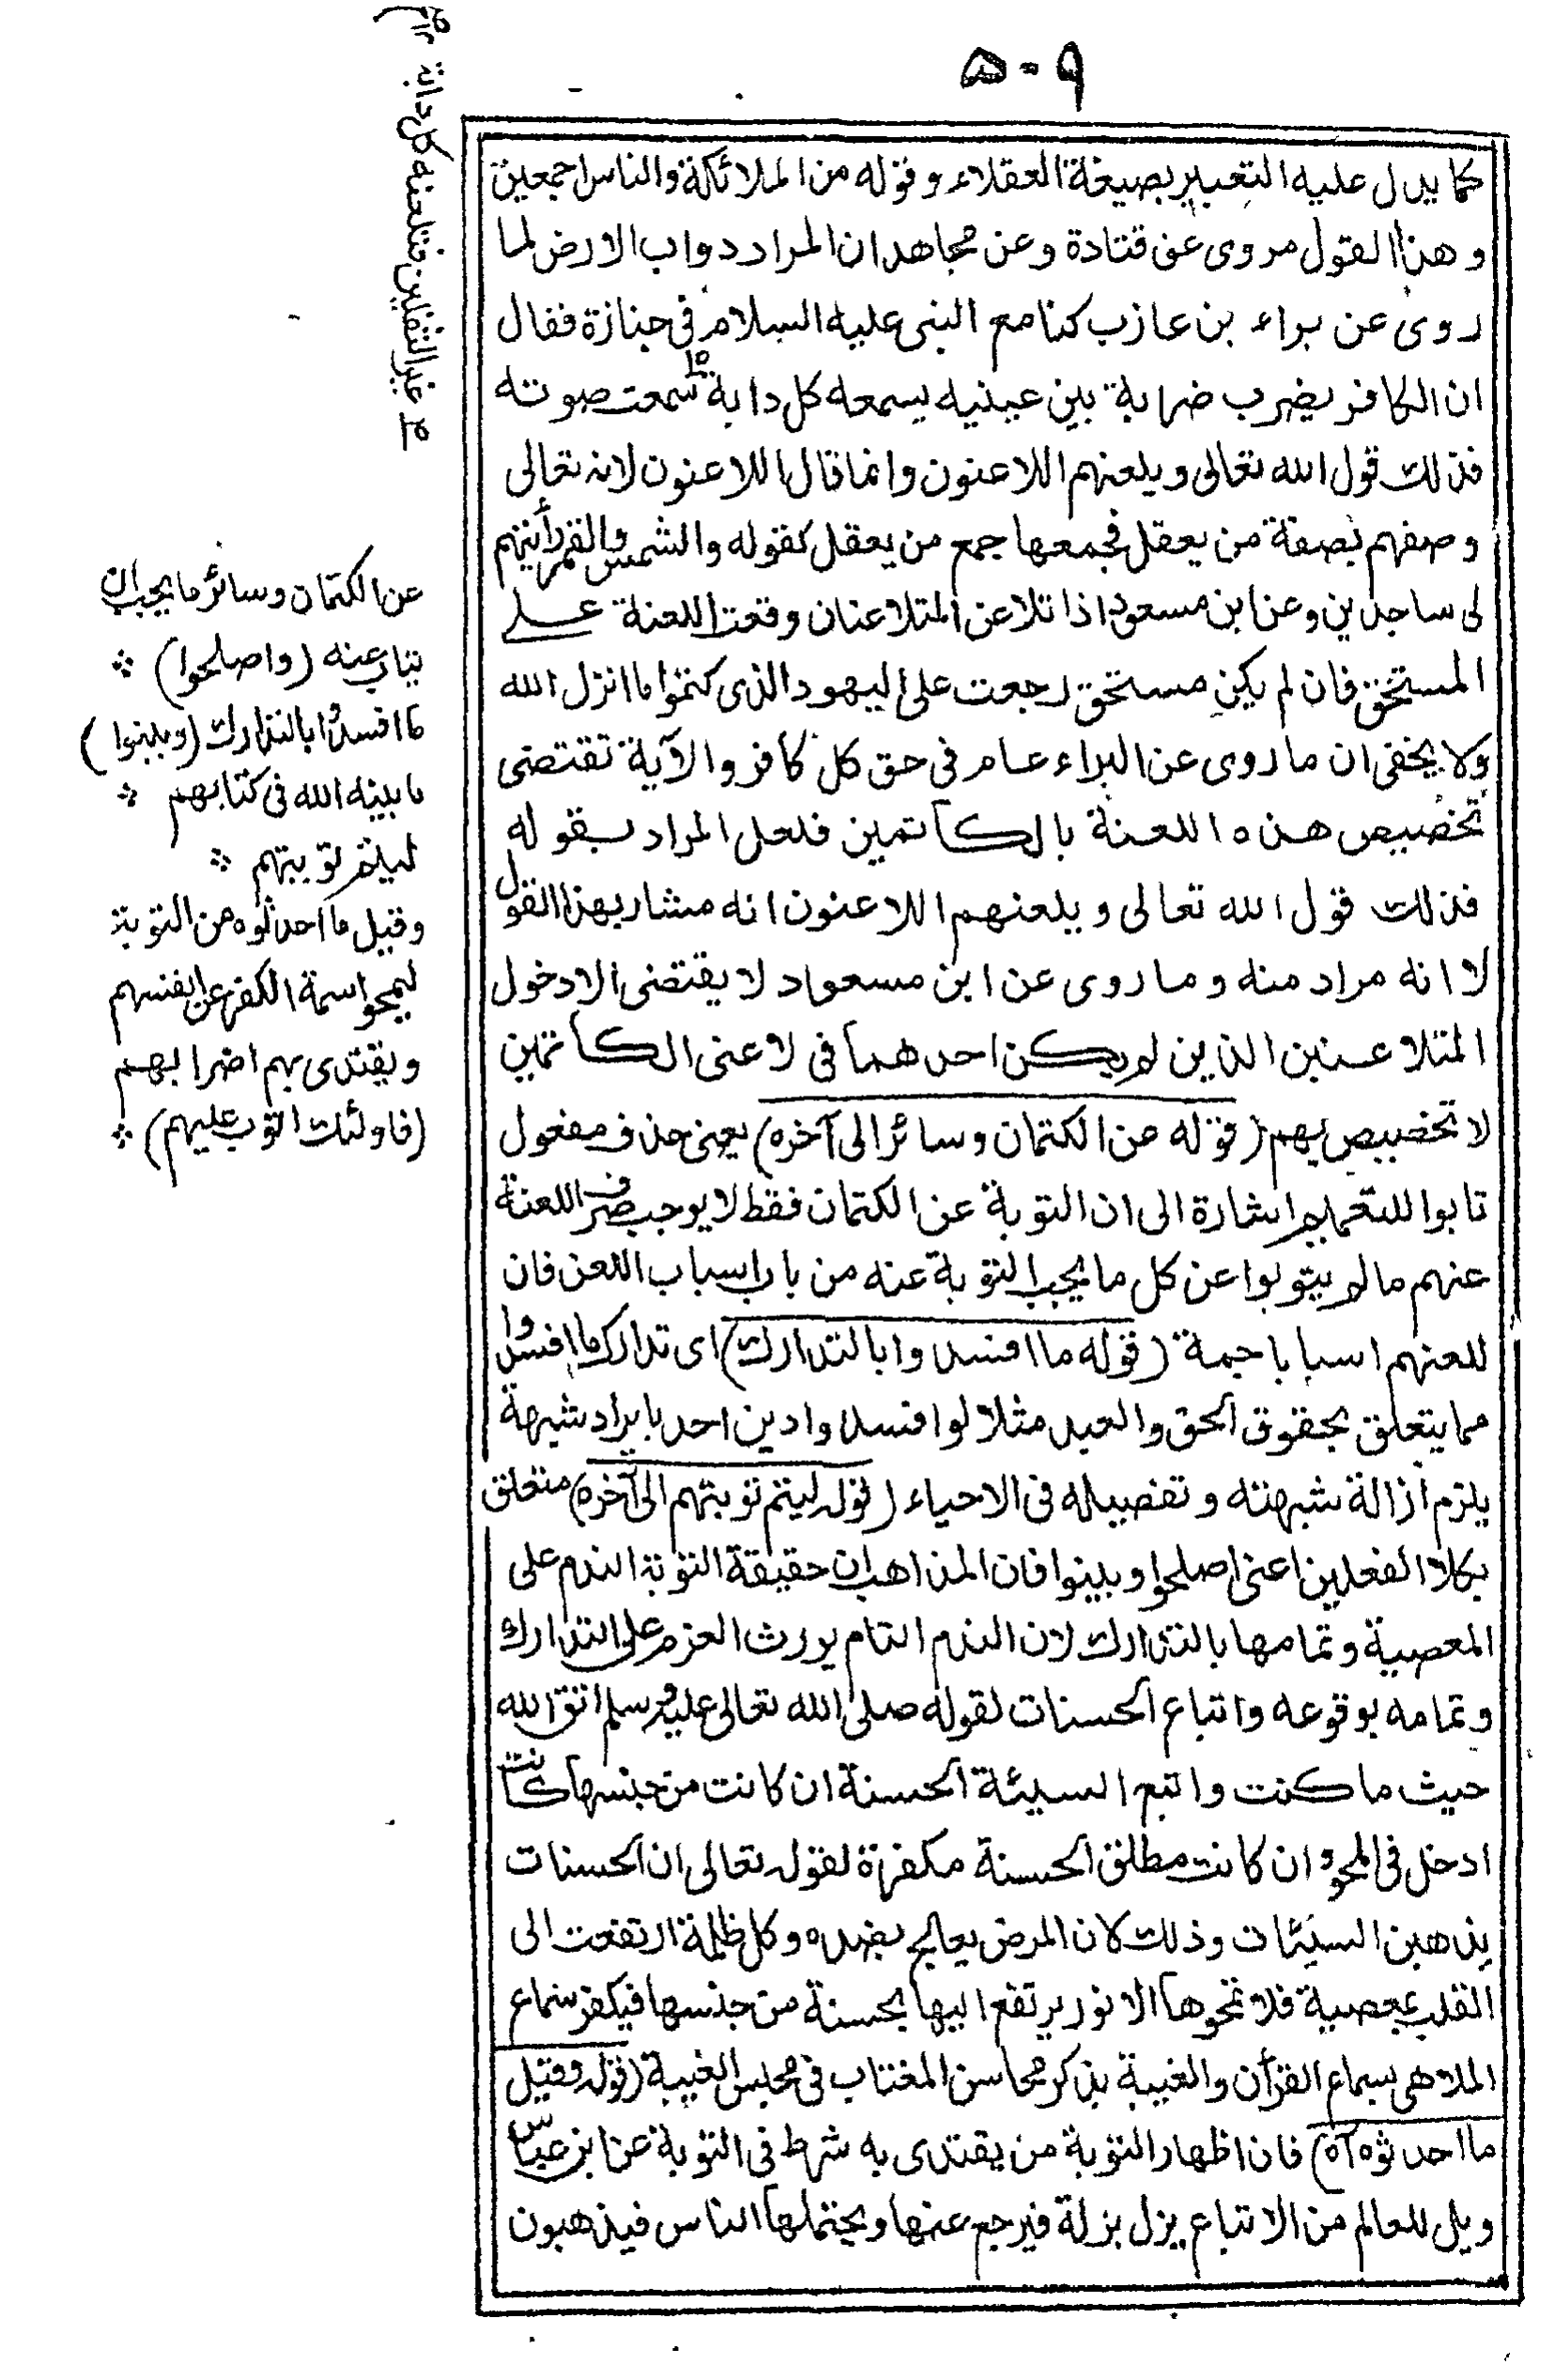 ٥٠٩
كما يدل عليه التعبير بصيغة العقلاء وقوله من الملائكة والناس اجمعين
وهذا القول مروى عن قتادة وعن مجاهد ان المراد دواب الارض لما
روى عن براء بن عازب كنا مع النبى عليه السلام فى جنازة فقال
ان الكافر يضرب ضرابة بين عينيه يسمعه كل دابة ما سمعت صوته
فذلك قول الله تعالى ويلعنهم اللاعنون وانما قال اللاعنون لانه تعالى
وصفهم بصفة من يعقل فجمعها جمع من يعقل كقوله والشمس والقمر رأيتهم
لى ساجدين وعن ابن مسعود اذا تلاعن المتلاعنان وقعت اللعنة على
المستحق فان لم يكن مستحق رجعت على اليهود الذى كتموا ما انزل الله
ولا يخفى ان ما روى عن البراء عام فى حق كل كافر والآية تقتضى
تخصيص هذه اللعنة بالكاتمين فلعل المراد بقوله
فذلك قول الله تعالى ويلعنهم اللاعنون انه مشار بهذا القول
لا انه مراد منه وما روى عن ابن مسعود لا يقتضى الا دخول
المتلاعنين الذين لم يكن احدهما فى لاعنى الكاتمين
لا تخصيص بهم (قوله عن الكتمان وسائر الى آخره) يعنى حذف مفعول
تابوا للتعميم اشارة الى ان التوبة عن الكتمان فقط لا يوجب صرف اللعنة
عنهم ما لم يتوبوا عن كل ما يجب التوبة عنه من باب اسباب اللعن فان
للعنهم اسبابا جمة (قوله ما افسدوا بالتدارك) اى تدارك ما افسدوا
مما يتعلق بحقوق الحق والعبد مثلا لو افسدوا دين احد بايراد شبهة
يلزم ازالة شبهته وتفصيله فى الاحياء (قوله ليتم توبتهم الى آخره) متعلق
بكلا الفعلين اعنى اصلحوا وبينوا فان المذاهب ان حقيقة التوبة الندم على
المعصية وتمامها بالتدارك لان الندم التام يورث العزم على التدارك
وتمامه بوقوعه واتباع الحسنات لقوله صلى الله تعالى عليه وسلم اتق الله
حيث ما كنت واتبع السيئة الحسنة ان كانت من جنسها كانت
ادخل فى المحو وان كانت مطلق الحسنة مكفرة لقوله تعالى ان الحسنات
يذهبن السيئات وذلك لان المرض يعالج بضده وكل ظلمة ارتفعت الى
القلب بمعصية فلا تمحوها الا نور يرتفع اليها بحسنة من جنسها فيكفر سماع
الملاهى بسماع القرأن والغيبة بذكر محاسن المغتاب فى مجلس الغيبة (قوله وقيل
ما احدثوه آه) فان اظهار التوبة من يقتدى به شرط فى التوبة عن ابن عباس
ويل للعالم من الاتباع يزل بزلة فيرجع عنها ويحتملها الناس فيذهبون
غير الثقلين فتلعنه كل دابة
عن الكتمان وسائر ما يجب ان
يتاب عنه (واصلحوا)
ما افسدوا بالتدارك (وبينوا)
ما بينه الله فى كتابهم
ليتم توبتهم
وقيل ما احدثوه من التوبة
ليمحوا سمة الكفر عن انفسهم
ويقتدى بهم اضرابهم
(فاولئك اتوب عليهم)